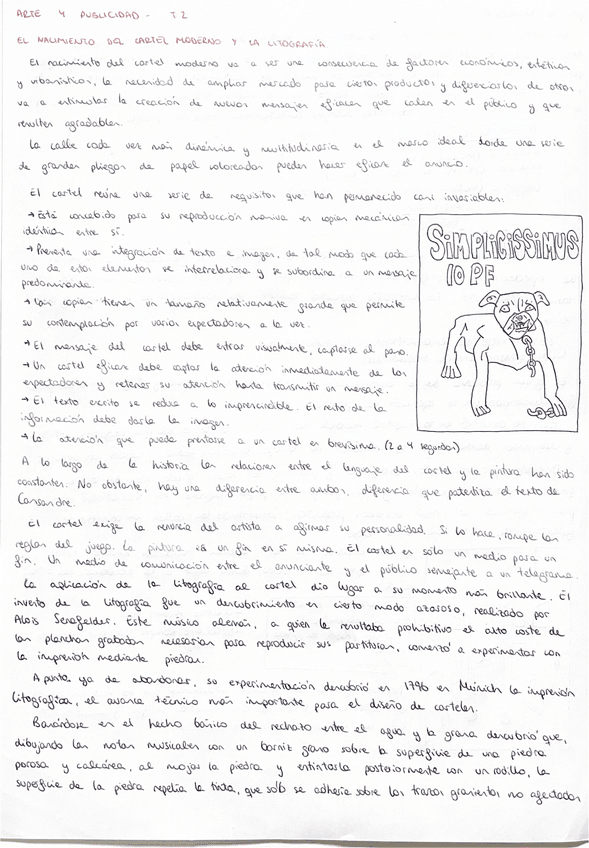 ARTE Y PUBLICIDAD - T2
EL NACIMIENTO DEL CARTEL MODERNO Y LA LITOGRAFÍA
El nacimiento del cartel moderno va a ser una consecuencia de factores económicos, estéticos
y urbanísticos, la necesidad de ampliar mercado para ciertos productos y diferenciarlos de otros
va a estimular la creación de nuevos mensajes eficaces que calen en el público y que
resulten agradables.
La calle cada vez más dinámica y multitudinaria es el marco ideal donde una serie
de grandes pliegos de papel coloreados pueden hacer eficaz el anuncio.
El cartel reúne una serie de requisitos que han permanecido casi invariables:
→ Está concebido para su reproducción masiva en copias mecánicas
idénticas entre sí.
→ Presenta una integración de texto e imagen, de tal modo que cada
uno de estos elementos se interrelaciona y se subordina a un mensaje
predominante.
→ Las copias tienen un tamaño relativamente grande que permite
su contemplación por varios espectadores a la vez.
→ El mensaje del cartel debe entrar visualmente, captarse al paso.
→ Un cartel eficaz debe captar la atención inmediatamente de los
espectadores y retener su atención hasta transmitir un mensaje.
→ El texto escrito se reduce a lo imprescindible. El resto de la
información debe darla la imagen.
→ La atención que puede prestarse a un cartel es brevísima. (2 a 4 segundos)
SIMPLICISSIMUS
10 PF
A lo largo de la historia las relaciones entre el lenguaje del cartel y la pintura han sido
constantes. No obstante, hay una diferencia entre ambos, diferencia que patentiza el texto de
Cassandre.
El cartel exige la renuncia del artista a afirmar su personalidad. Si lo hace, rompe las
reglas del juego. La pintura es un fin en sí misma. El cartel es sólo un medio para un
fin. Un medio de comunicación entre el anunciante y el público semejante a un telegrama.
La aplicación de la litografía al cartel dio lugar a su momento más brillante. El
invento de la litografía fue un descubrimiento en cierto modo azaroso, realizado por
Alois Senefelder. Este músico alemán, a quien le resultaba prohibitivo el alto coste de
las planchas grabadas necesarias para reproducir sus partituras, comenzó a experimentar con
la impresión mediante piedras.
A punto ya de abandonar, su experimentación descubrió en 1796 en Múnich la impresión
litográfica, el avance técnico más importante para el diseño de carteles.
Basándose en el hecho básico del rechazo entre el agua y la grasa descubrió que,
dibujando las notas musicales con un barniz graso sobre la superficie de una piedra
porosa y calcárea, al mojar la piedra y entintarla posteriormente con un rodillo, la
superficie de la piedra repelía la tinta, que sólo se adhería sobre los trazos grasientos no afectados